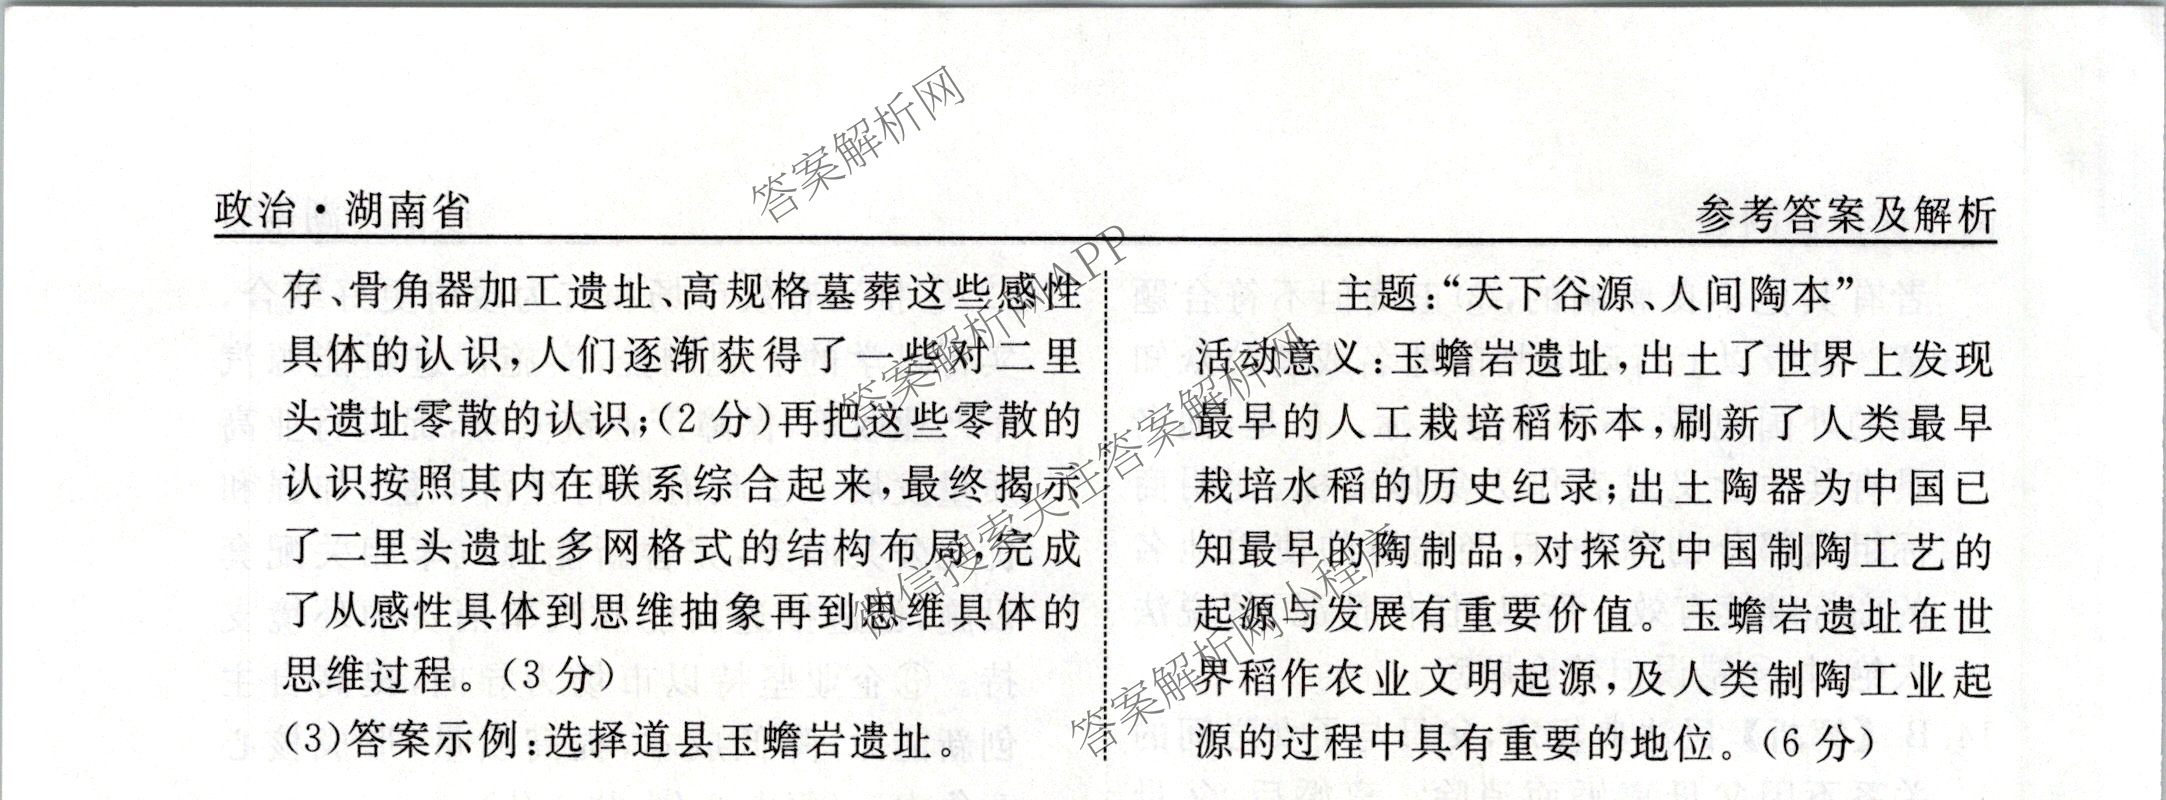 政治·湖南省
参考答案及解析
存、骨角器加工遗址、高规格墓葬这些感性
具体的认识,人们逐渐获得了一些对二里
头遗址零散的认识;(2分)再把这些零散的
认识按照其内在联系综合起来,最终揭示
了二里头遗址多网格式的结构布局,完成
了从感性具体到思维抽象再到思维具体的
思维过程。(3分)
(3)答案示例:选择道县玉蟾岩遗址。
主题:“天下谷源、人间陶本”
活动意义:玉蟾岩遗址,出土了世界上发现
最早的人工栽培稻标本,刷新了人类最早
栽培水稻的历史纪录;出土陶器为中国已
知最早的陶制品,对探究中国制陶工艺的
起源与发展有重要价值。玉蟾岩遗址在世
界稻作农业文明起源,及人类制陶工业起
源的过程中具有重要的地位。(6分)
答案解析网
答案解析网APP
微信搜索关注答案解析网
答案解析网小程序